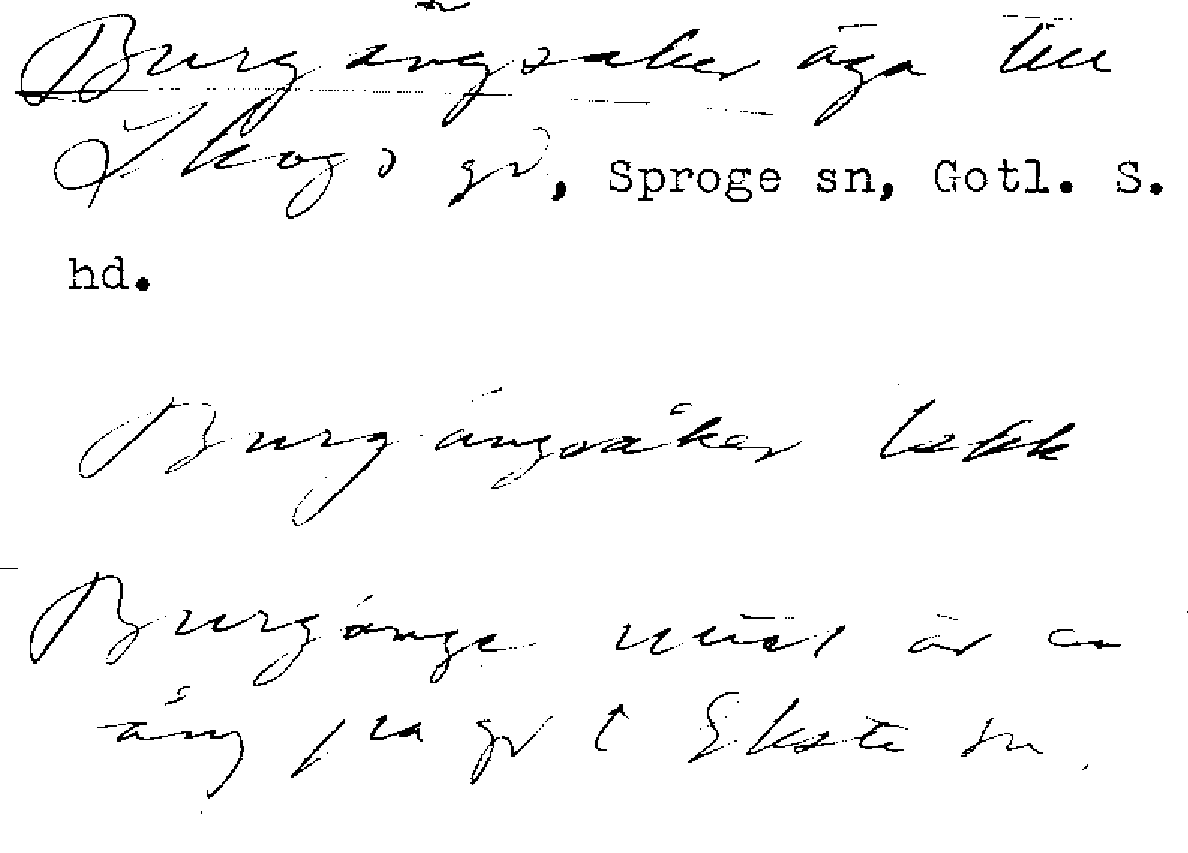 Burgängsåker äga till
Skogs gd, Sproge sn, Gotl. S.
hd.
Burgängsåker
Burgänge är en
äng på gd i Eksta sn.